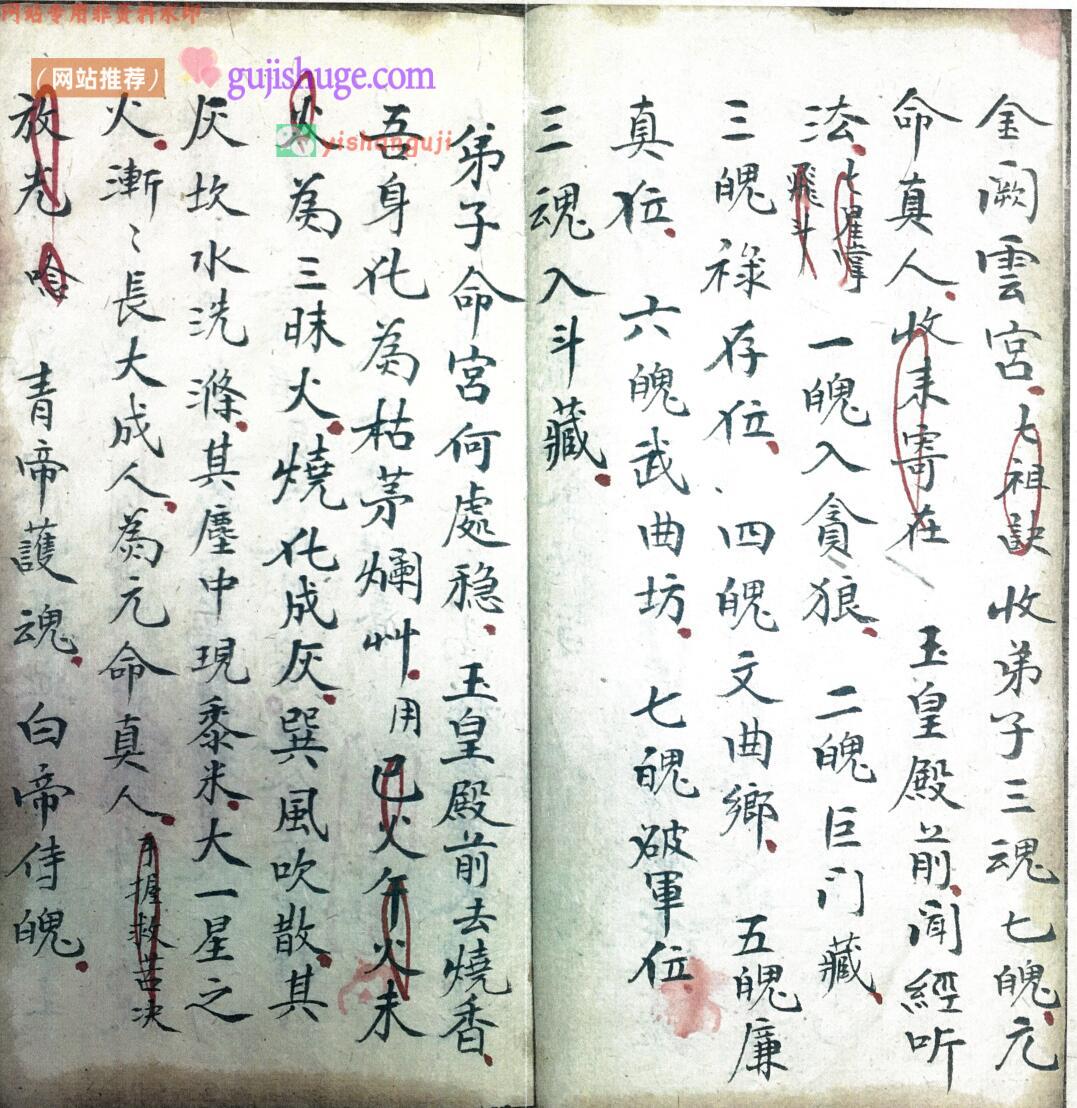 网站专用非资料水印
(网站推荐)
gujishuge.com
yishanguji
金闕雲宮七祖訣收弟子三魂七魄元
命真人收来寄在 玉皇殿前闻經听
法七星掌飛斗 一魄入貪狼 二魄巨门藏
三魄禄存位 四魄文曲鄉 五魄廉
真位 六魄武曲坊 七魄破軍位
三魂入斗藏
弟子命宮何處稳 玉皇殿前去燒香
吾身化為枯茅爛艸用巳火午火未
火為三昧火燒化成灰巽風吹散其
灰坎水洗滌其塵中現黍米大一星之
火漸〻長大成人為元命真人手握救苦决
放光唅 青帝護魂 白帝侍魄